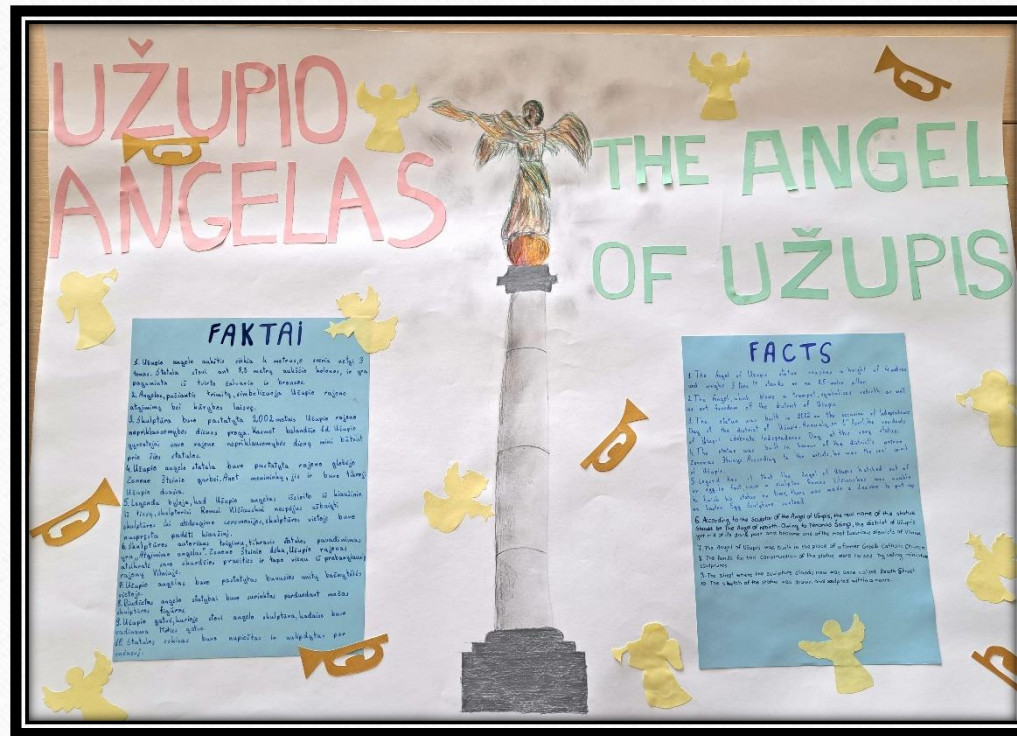 UŽUPIO
ANGELAS
THE ANGEL
OF UŽUPIS
FAKTAI
1. Užupio angelo aukštis siekia 4 metrus, o sveria netgi 3
tonas. Statula stovi ant 8,5 metrų aukščio kolonos, ir yra
pagaminta iš tvirto žalvario ir bronzos.
2. Angelas, pučiantis trimitą, simbolizuoja Užupio rajono
atgimimą bei kūrybos laisvę.
3. Skulptūra buvo pastatyta 2002 metais Užupio rajono
nepriklausomybės dienos proga. Kasmet balandžio 1d. Užupio
gyventojai savo rajono nepriklausomybės dieną mini būtent
prie šios statulos.
4. Užupio angelo statula buvo pastatyta rajono globėjo
Zenono Šteinio garbei. Anot menininkų, jis ir buvo tikroji
Užupio dvasia.
5. Legenda byloja, kad Užupio angelas išsirito iš kiaušinio.
Iš tikrųjų, skulptoriui Romui Vilčiauskui nespėjus užbaigti
skulptūros iki atidengimo ceremonijos, skulptūros vietoje buvo
nuspręsta padėti kiaušinį.
6. Skulptūros autoriaus teigimu, tikrasis statulos pavadinimas
yra „Atgimimo angelas“. Zenono Šteinio dėka, Užupio rajonas
atsikratė savo skurdžios praeities ir tapo vienu iš prabangiausių
rajonų Vilniuje.
7. Užupio angelas buvo pastatytas buvusios unitų bažnyčios
vietoje.
8. Biudžetas angelo statybai buvo surinktas parduodant mažas
skulptūros figūras.
9. Užupio gatvė, kurioje stovi angelo skulptūra, kadaise buvo
vadinama Mirties gatve.
10. Statulos eskizas buvo nupieštas ir nulipdytas per
FACTS
1. The Angel of Užupis statue reaches a height of
and weighs 3 tons. It stands on an 8.5 meter pillar.
2. The Angel, which blows a trumpet, symbolizes rebirth as well
as art freedom of the district of Užupis.
3. The statue was built in 2002 on the occasion of Independence
Day of the district of Užupis. Annually, on 1st April, the residents
of Užupis celebrate Independence Day at this very statue.
4. The statue was built in honour of the district's patron,
Zenonas Šteinys. According to the artists, he was the real spirit
of Užupis.
5. Legend has it that the Angel of Užupis hatched out of
an egg. In fact, since a sculptor Romas Vilčiauskas was unable
to finish his statue on time, there was made a decision to put up
an Easter Egg sculpture instead.
6. According to the sculptor of the Angel of Užupis, the real name of the statue
sounds as The Angel of rebirth. Owing to Zenonas Šteinys, the district of Užupis
got rid of its dark past and became one of the most luxurious districts of Vilnius.
7. The Angel of Užupis was built in the place of a former Greek Catholic Church.
8. The funds for the construction of the statue were raised by selling miniature
sculptures.
9. The street where the sculpture stands now was once called Death Street.
10. The sketch of the statue was drawn and sculpted within a month.